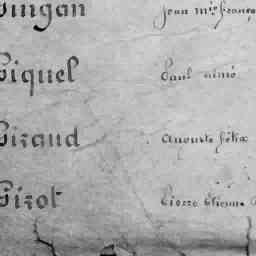 Gingan Jean Mie Franço
Giquel Paul aimé
Giraud Auguste félix
Girot Pierre Etienne